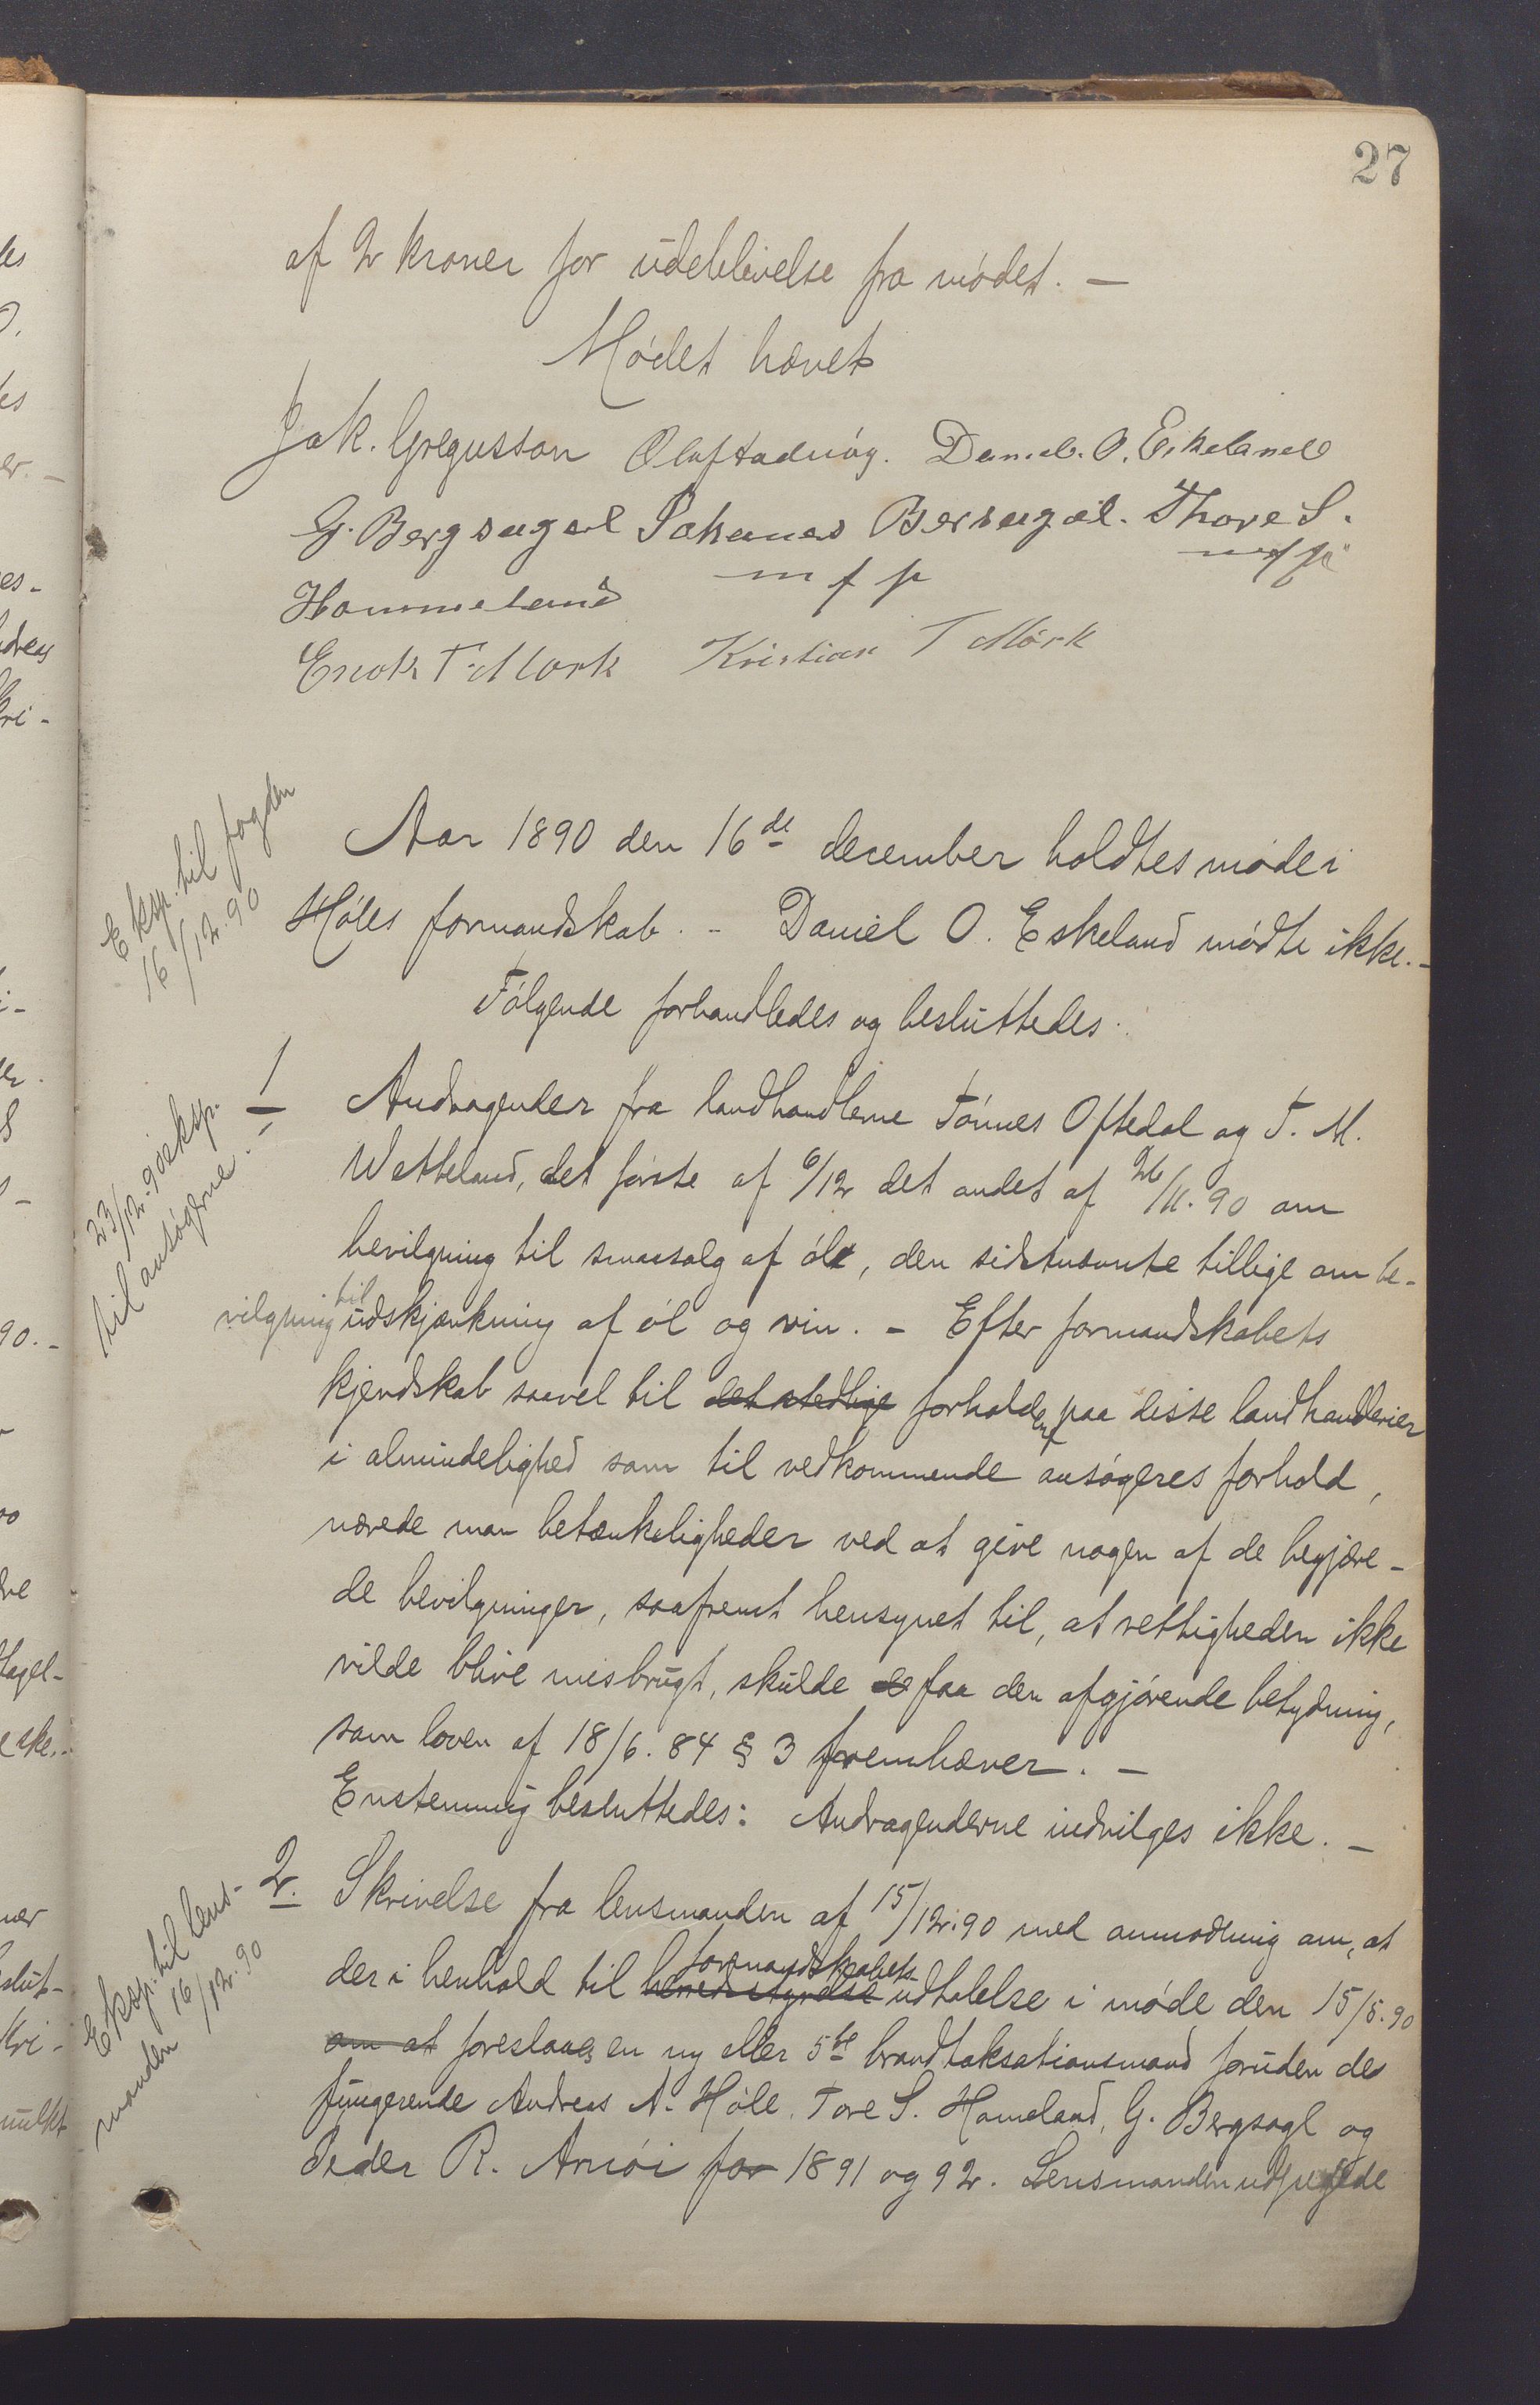 27
af 2 kroner for udeblivelse fra mødet. —
Mødet hævet
Jak. Gregusson Olaf Hadnøg. Daniel. O. Eikeland
G. Bergsagel Johanas Bersagel. Thore S.
m f p m f p
Hommeland
Enok T. Mørk Kristian T Mörk
Eksp. til fogden
16/12.90
Aar 1890 den 16de december holdtes møde i
Høles formandskab. – Daniel O. Eskeland mødte ikke. –
Følgende forhandledes og besluttedes:
23/12.90 eksp.
til ansøgerne.
1
Andragender fra landhandlerne Tønnes Oftedal og T. M.
Wetteland, det første af 6/12 det andet af 26/11.90 om
bevilgning til smaasalg af øl, den sidstnævnte tillige om be-
vilgning til udskjænkning af øl og vin. – Efter formandskabets
kjendskab saavel til det stedlige forholdene paa disse landhandlerier
i almindelighed som til vedkommende ansøgeres forhold,
nærede man betænkeligheder ved at give nogen af de begjære-
de bevilgninger, saafremt hensynet til, at rettigheden ikke
vilde blive misbrugt, skulde de faa den afgjørende betydning,
som loven af 18/6. 84 § 3 fremhæver. —
Enstemmig besluttedes: Andragenderne indvilges ikke. —
Eksp. til lens-
manden 16/12.90
2.
Skrivelse fra lensmanden af 15/12.90 med anmodning om, at
der i henhold til herredsstyrelse formandskabets udtalelse i møde den 15/5.90
om at foreslaaes en ny eller 5te brandtaksationsmand foruden de
fungerende Andreas A. Høle, Tore S. Homeland, G. Bergsagl og
Peder R. Amøi for 1891 og 92. Lensmanden